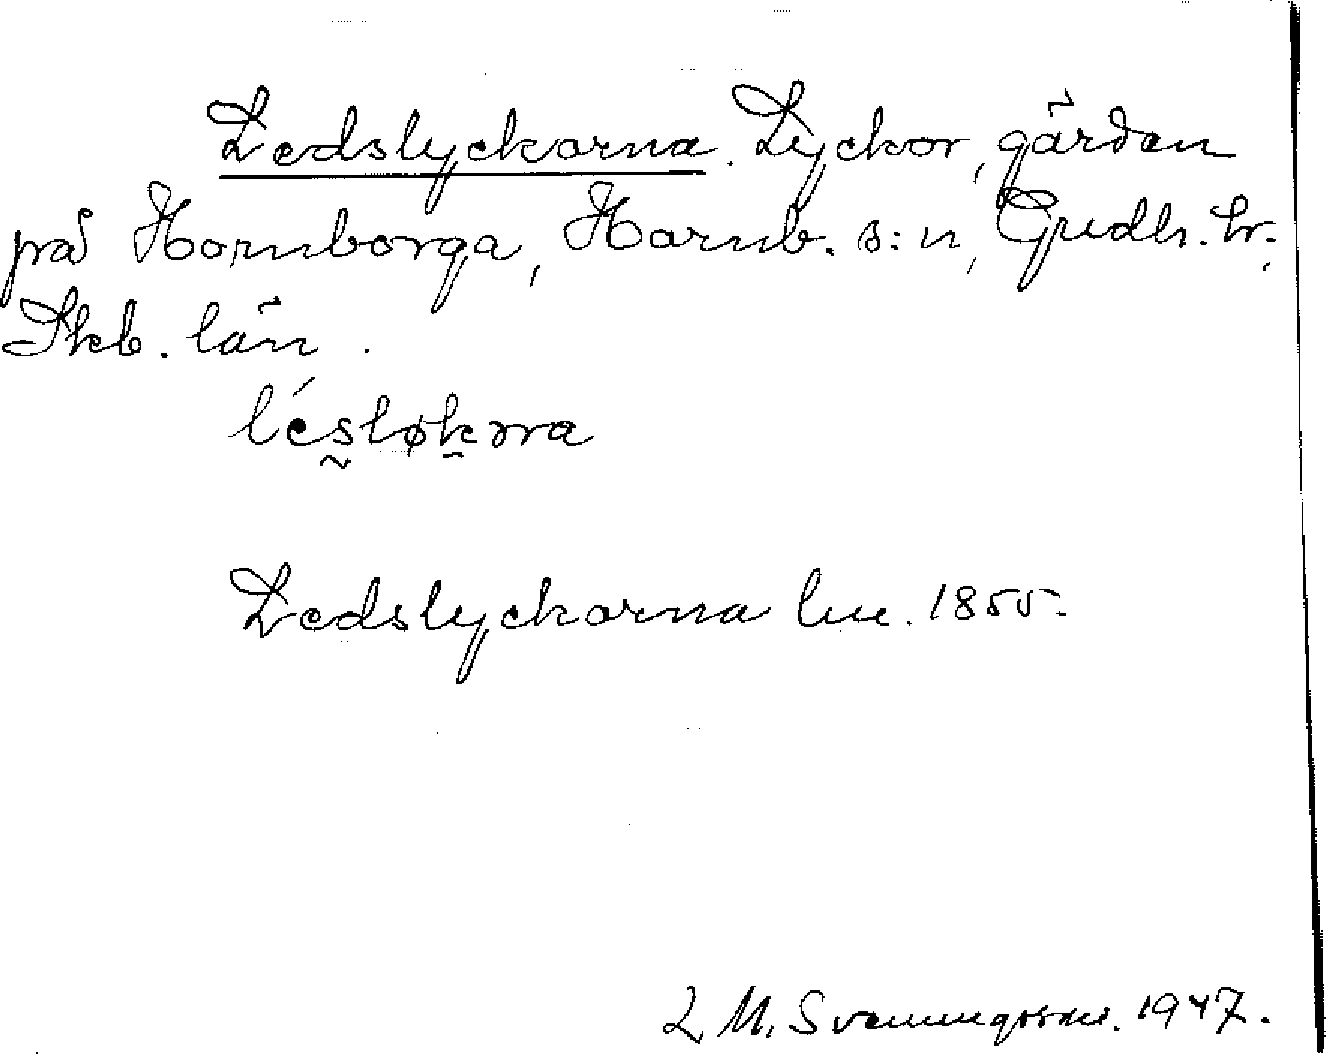 Ledslyckorna. Lyckor, gärden
på Hornborga, Hornb. s:n, Gudh. hr.
Skb. län.
lésløkɔrna
Ledslyckorna lm. 1855.
L M. Svenungsson. 1947.